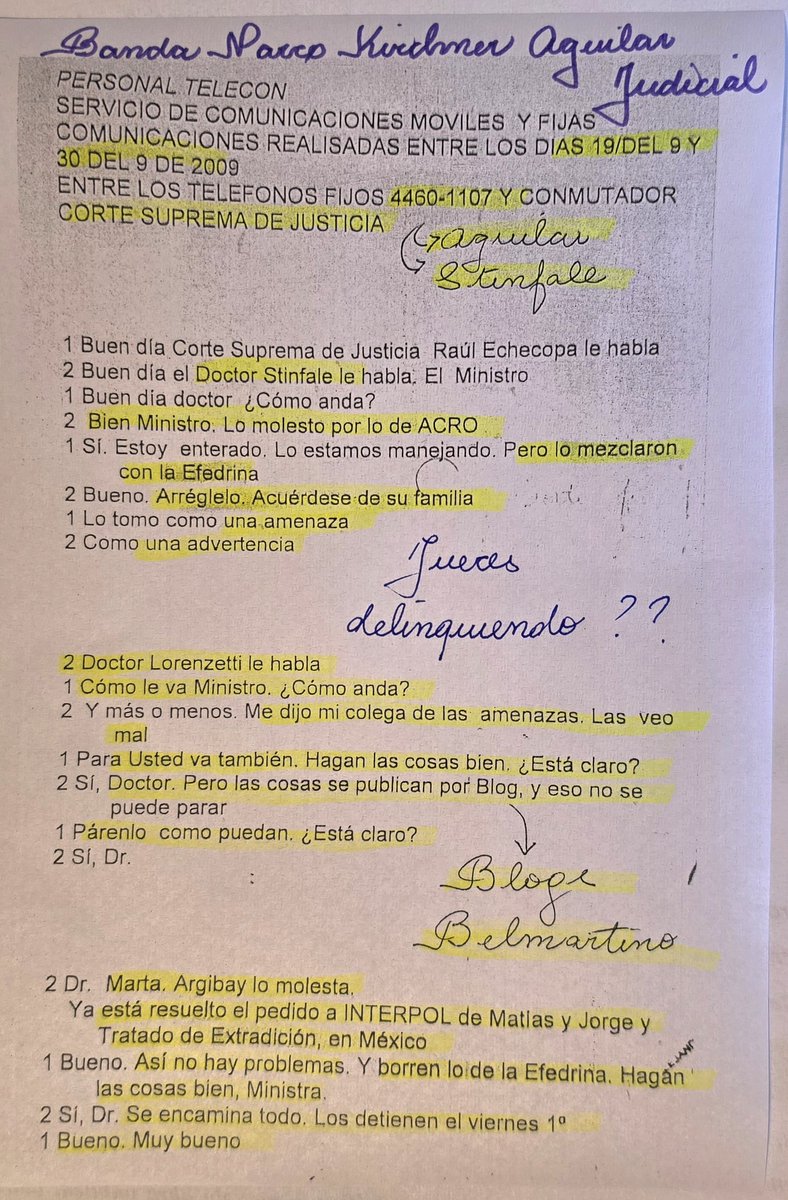 Banda Narco Kirchner Aguilar
Judicial
PERSONAL TELECON
SERVICIO DE COMUNICACIONES MOVILES Y FIJAS
COMUNICACIONES REALISADAS ENTRE LOS DIAS 19/DEL 9 Y
30 DEL 9 DE 2009
ENTRE LOS TELEFONOS FIJOS 4460-1107 Y CONMUTADOR
CORTE SUPREMA DE JUSTICIA
Aguilar
Stinfale
1 Buen día Corte Suprema de Justicia Raúl Echecopa le habla
2 Buen día el Doctor Stinfale le habla. El Ministro
1 Buen día doctor ¿Cómo anda?
2 Bien Ministro. Lo molesto por lo de ACRO
1 Sí. Estoy enterado. Lo estamos manejando. Pero lo mezclaron
con la Efedrina
2 Bueno. Arréglelo. Acuérdese de su familia
1 Lo tomo como una amenaza
2 Como una advertencia
Jueces
delinquiendo ??
2 Doctor Lorenzetti le habla
1 Cómo le va Ministro. ¿Cómo anda?
2 Y más o menos. Me dijo mi colega de las amenazas. Las veo
mal
1 Para Usted va también. Hagan las cosas bien. ¿Está claro?
2 Sí, Doctor. Pero las cosas se publican por Blog, y eso no se
puede parar
1 Párenlo como puedan. ¿Está claro?
2 Sí, Dr.
Bloge
Belmartino
2 Dr. Marta. Argibay lo molesta.
Ya está resuelto el pedido a INTERPOL de Matías y Jorge y
Tratado de Extradición, en México
1 Bueno. Así no hay problemas. Y borren lo de la Efedrina. Hagan
las cosas bien, Ministra.
2 Sí, Dr. Se encamina todo. Los detienen el viernes 1º
1 Bueno. Muy bueno